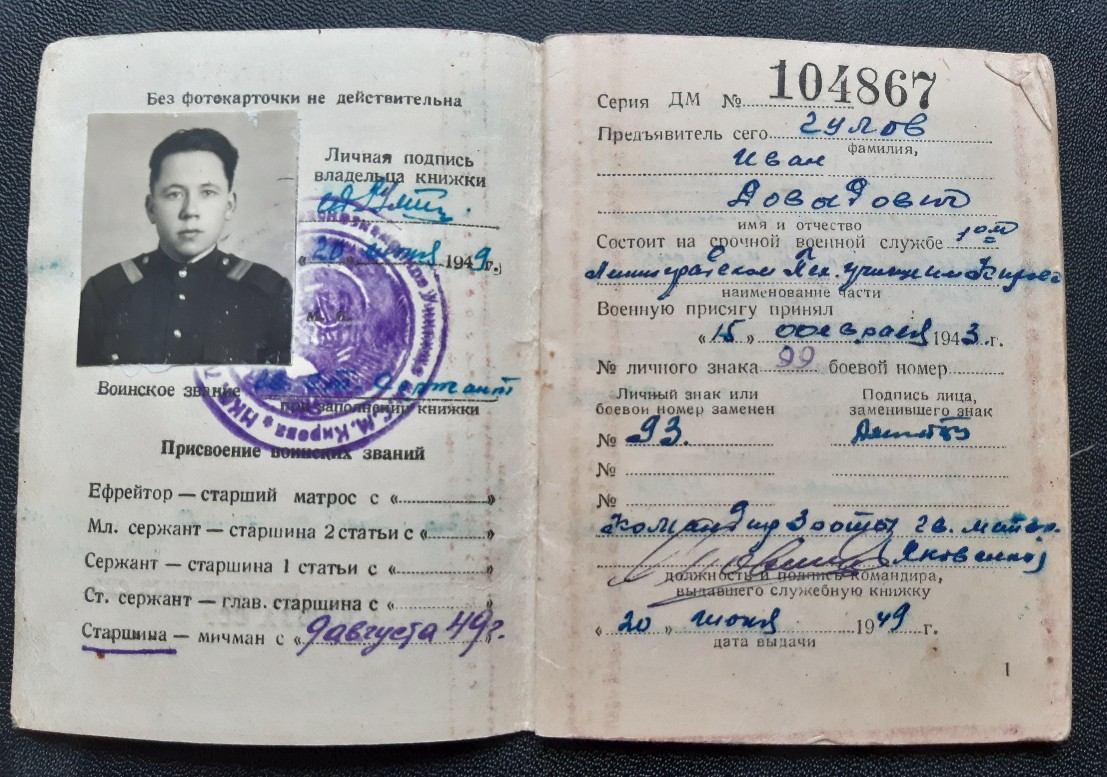 Без фотокарточки не действительна
Личная подпись
владельца книжки
«20» июня 1949г.
М. П.
Воинское звание гв. ст. сержант
при заполнении книжки
Присвоение воинских званий
Ефрейтор — старший матрос с « »
Мл. сержант — старшина 2 статьи с « »
Сержант — старшина 1 статьи с « »
Ст. сержант — глав. старшина с « »
Старшина — мичман с «9 августа 49г.
Серия ДМ № 104867
Предъявитель сего Гулов
фамилия,
Иван
Довыдович
имя и отчество
Состоит на срочной военной службе 1ом
Ленинградском Пех. училище им Кирова
наименование части
Военную присягу принял
«15» февраля 1943.г.
№ личного знака 99 боевой номер
Личный знак или
боевой номер заменен
Подпись лица,
заменившего знак
№ 93.
№
№
Командир 3 роты гв. майор
Яковенко
должность и подпись командира,
выдавшего служебную книжку
«20» июня 1949 г.
дата выдачи
1
С.М. Кирова